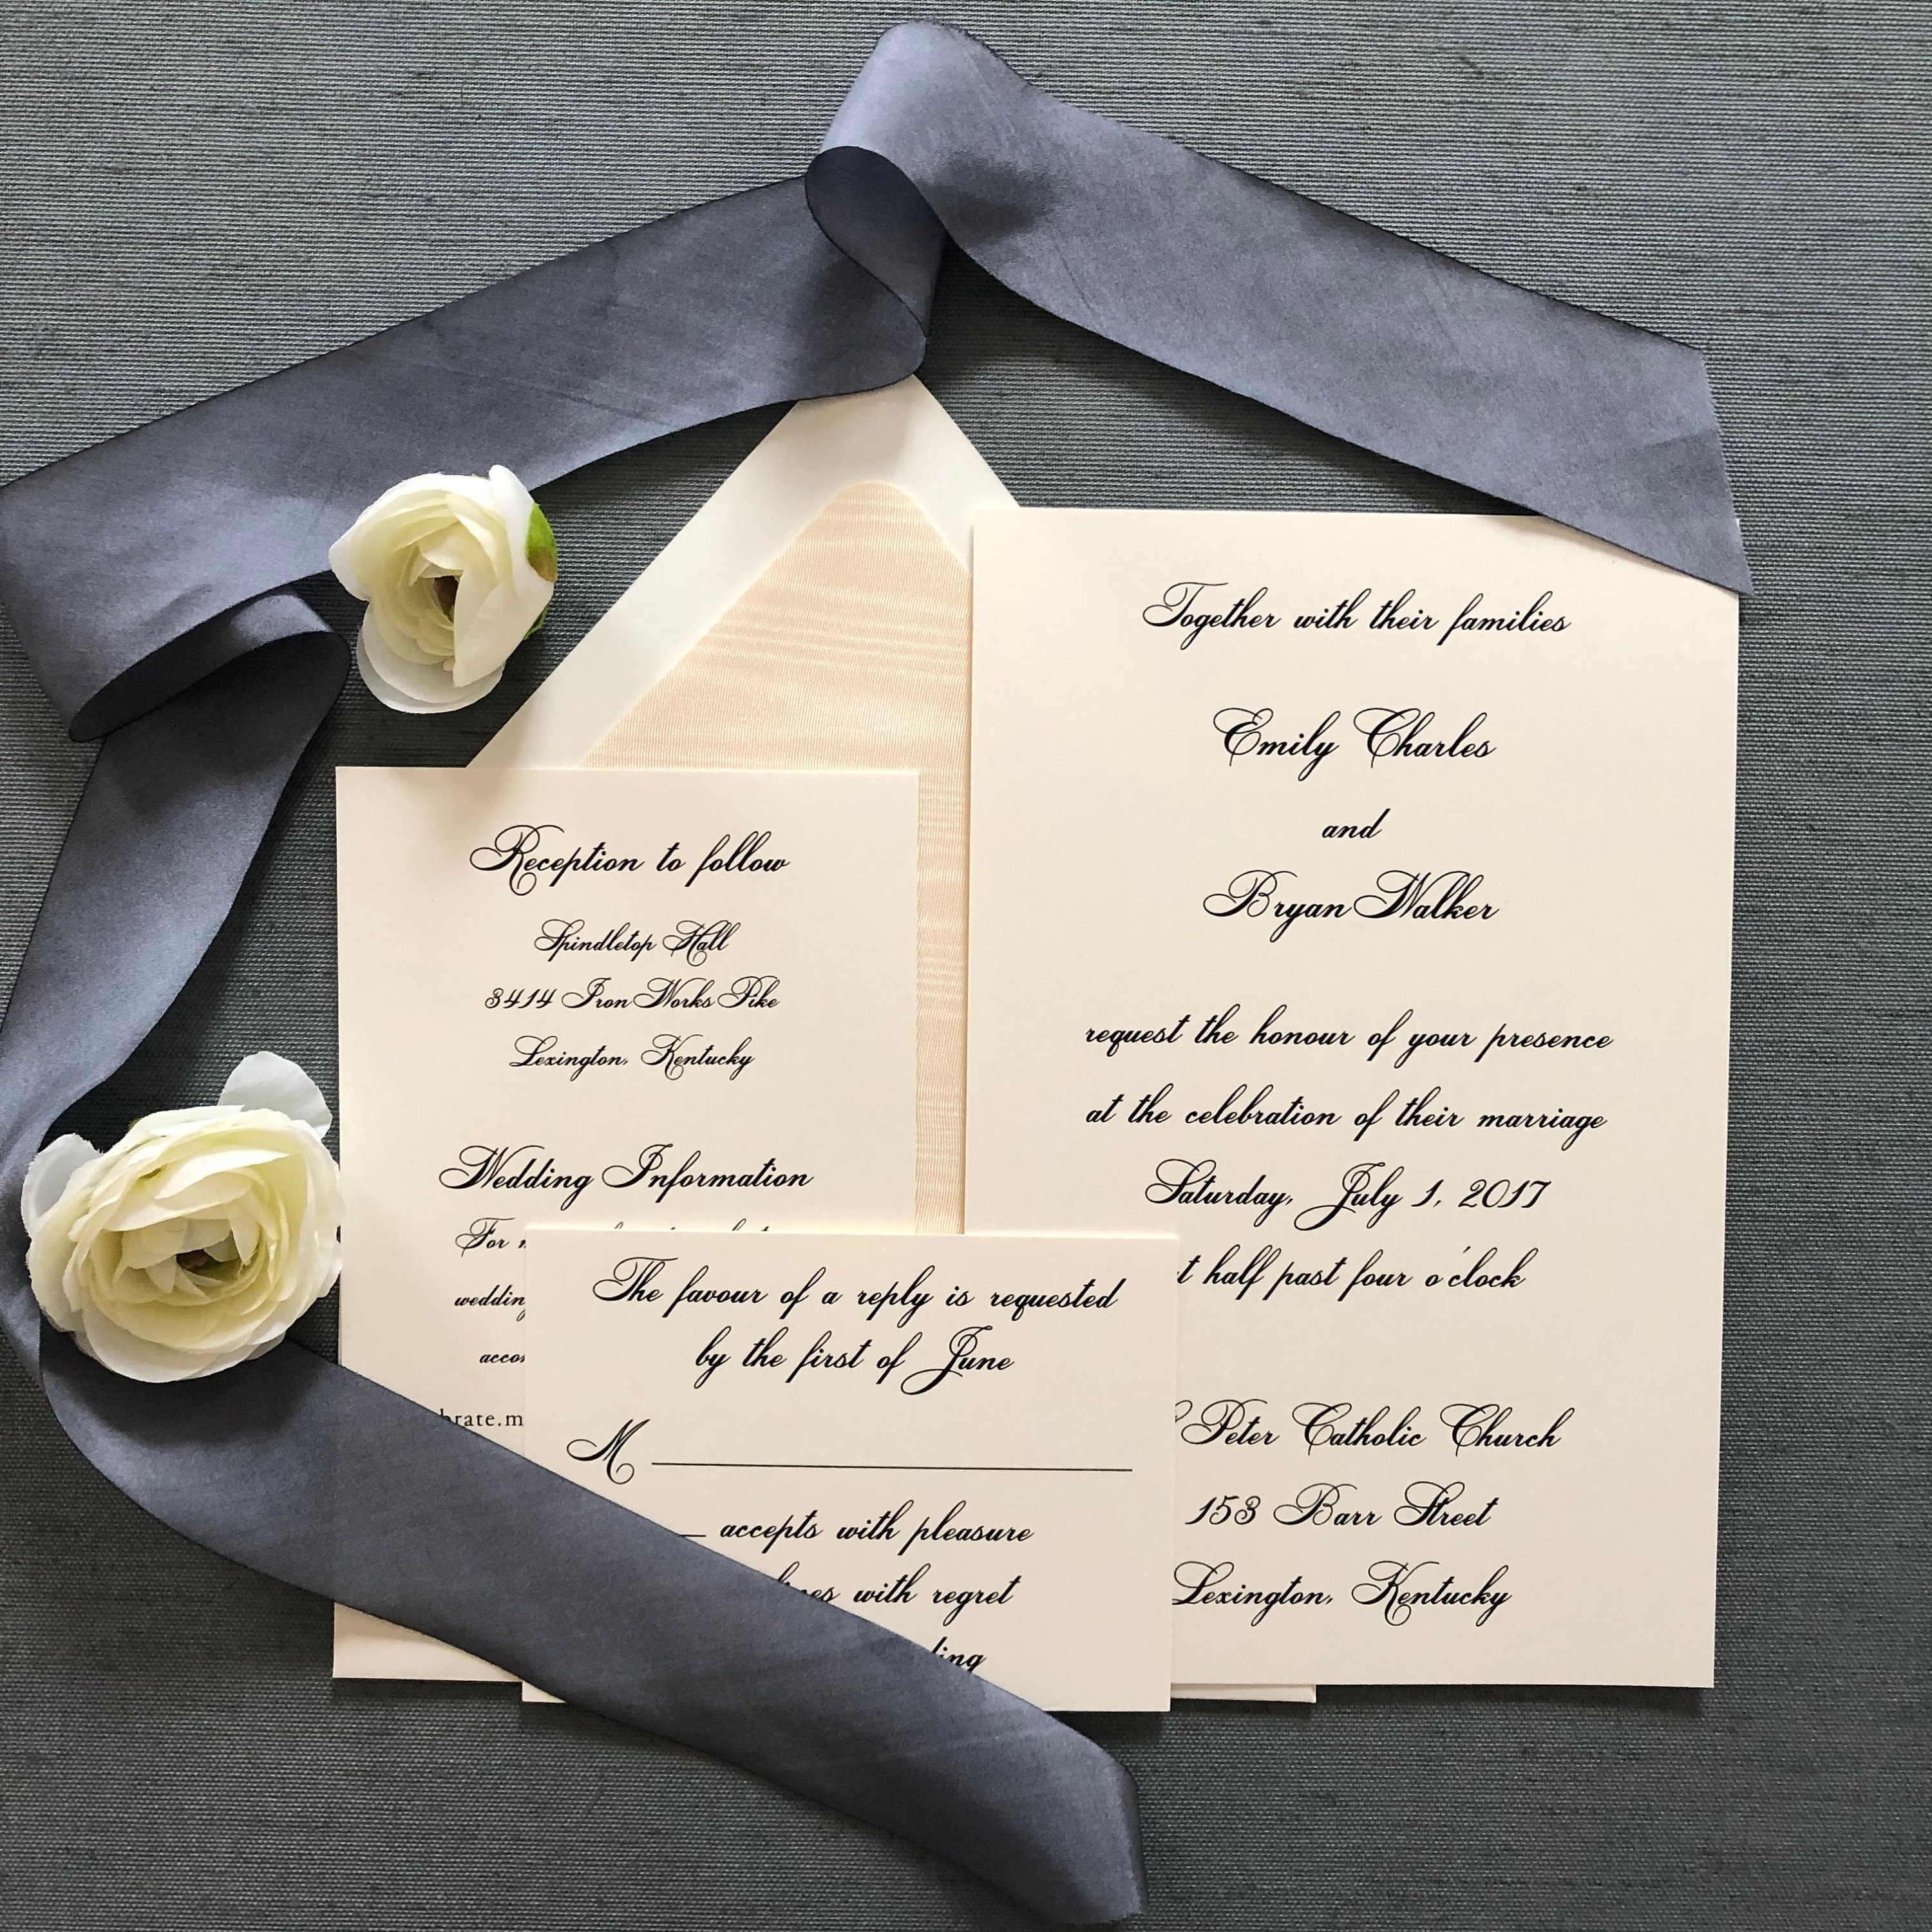 Together with their families
Emily Charles
and
Bryan Walker
request the honour of your presence
at the celebration of their marriage
Saturday, July 1, 2017
half past four o'clock
Peter Catholic Church
153 Barr Street
Lexington, Kentucky
Reception to follow
Spindletop Hall
3414 Iron Works Pike
Lexington, Kentucky
Wedding Information
For
wedding
The favour of a reply is requested
by the first of June
M
accepts with pleasure
with regret